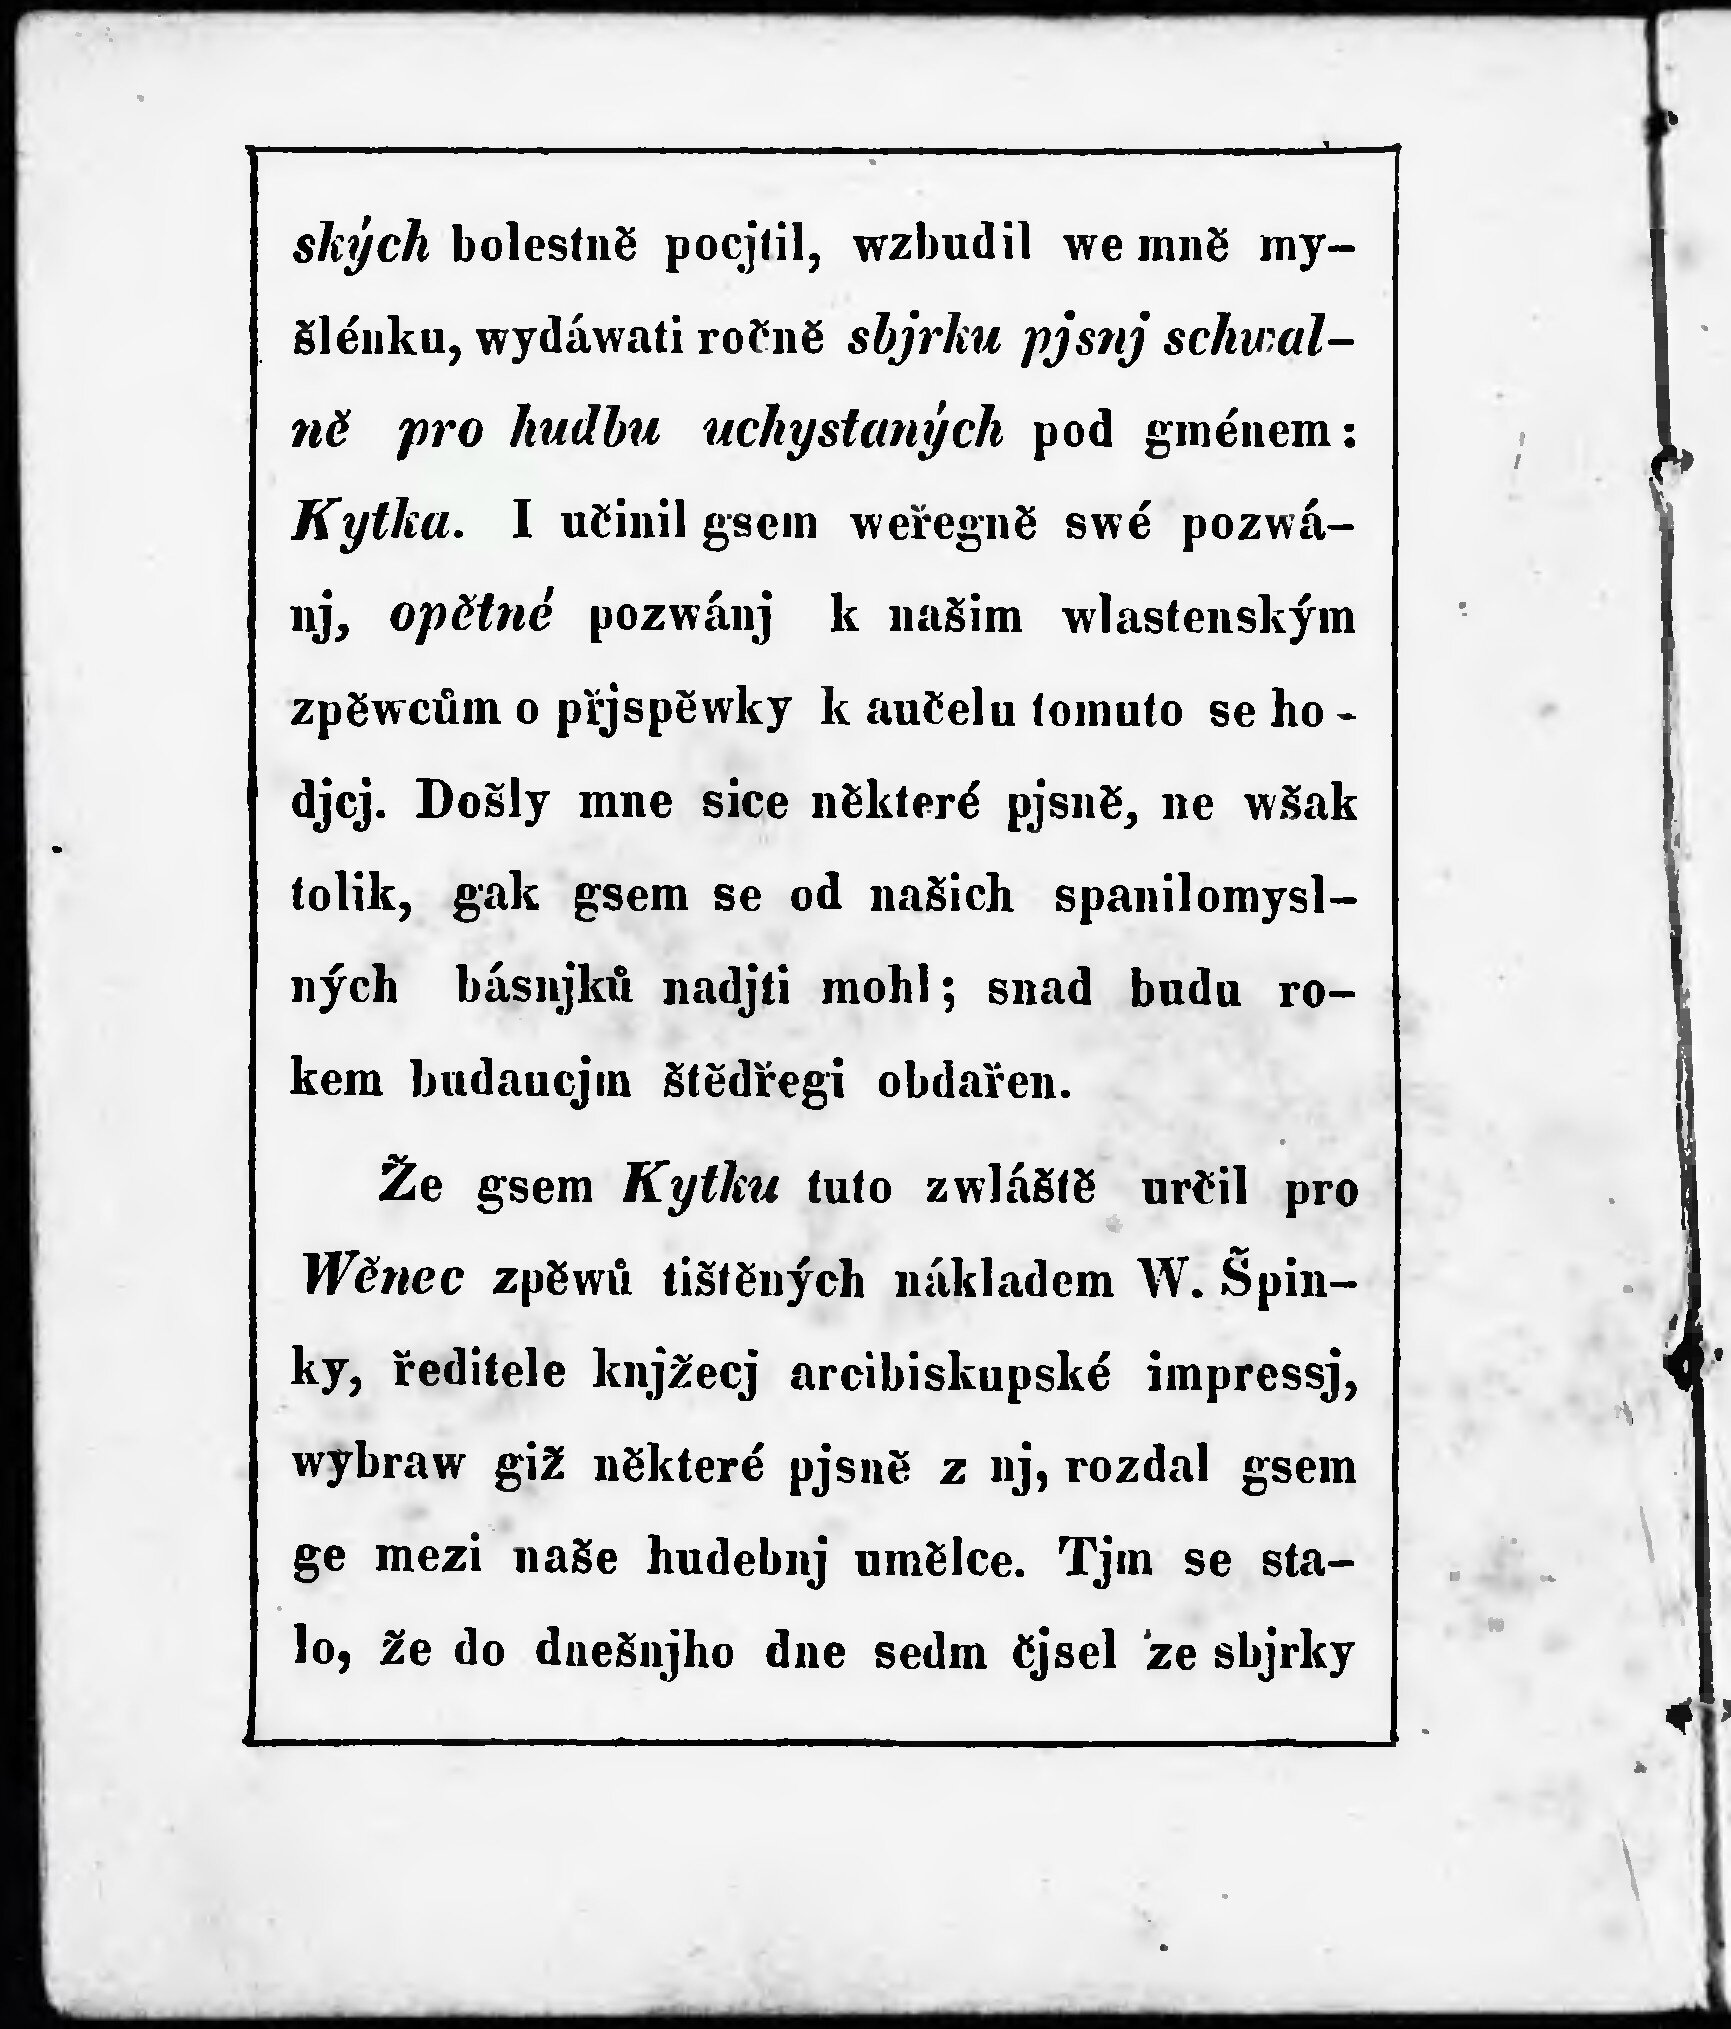 ských bolestně pocjtil, wzbudil we mně my-
šlénku, wydáwati ročně sbjrku pjsnj schwal-
ně pro hudbu uchystaných pod gménem:
Kytka. I učinil gsem weřegně swé pozwá-
nj, opětné pozwánj k našim wlastenským
zpěwcům o přjspěwky k aučelu tomuto se ho-
djcj. Došly mne sice některé pjsně, ne wšak
tolik, gak gsem se od našich spanilomysl-
ných básnjků nadjti mohl; snad budu ro-
kem budaucjm štědřegi obdařen.
Že gsem Kytku tuto zwláště určil pro
Wěnec zpěwů tištěných nákladem W. Špin-
ky, ředitele knjžecj arcibiskupské impressj,
wybraw giž některé pjsně z nj, rozdal gsem
ge mezi naše hudebnj umělce. Tjm se sta-
lo, že do dnešnjho dne sedm čjsel ze sbjrky